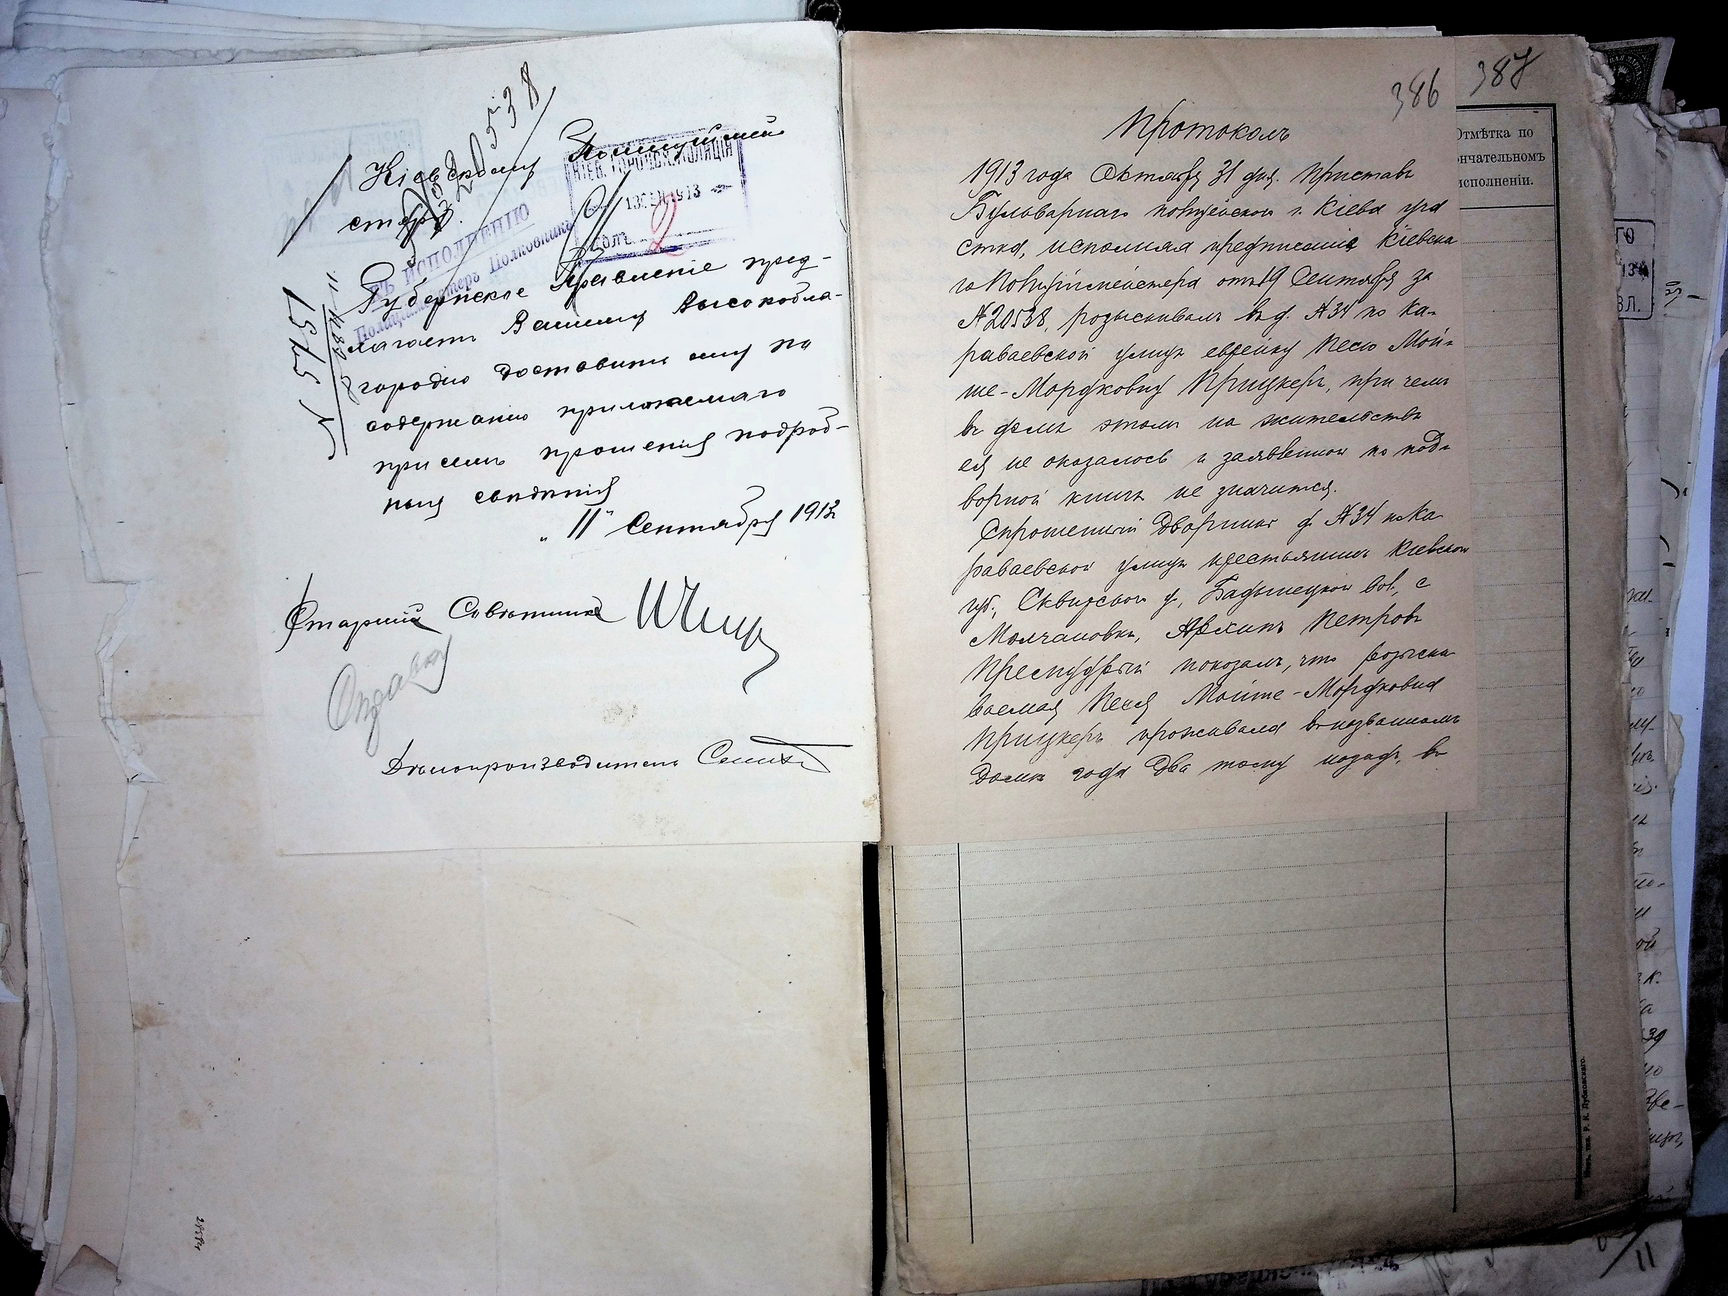 № 20538
Кіевскому Полицеймей-
стеру.
КІЕВ. ГОРОДСК. ПОЛИЦІЯ
13 СЕН 1913
2
КЪ ИСПОЛНЕНІЮ
Полицеймейстеръ Полковникъ
Губернское Правленіе пред-
лагаетъ Вашему Высокобла-
городію доставить ему по
содержанію прилагаемаго
при семъ прошенія подроб-
ныя свѣдѣнія
"11" Сентября 1913
Старшій Совѣтникъ
Справку
Дѣлопроизводитель
386
387
Отмѣтка по
окончательномъ
исполненіи.
Протоколъ
1913 года Октября 31 дня. Приставъ
Бульварнаго полицейскаго г. Кіева уча
стка, исполняя предписаніе Кіевска
го Полиціймейстера отъ 19 Сентября за
№ 20538, розыскивалъ въ д. № 34 по Ка-
раваевской улицѣ еврейку Песю Мой-
ше-Мордковну Прицкеръ, при чемъ
въ домѣ этомъ на жительствѣ
ея не оказалось и заявленной по под-
ворной книгѣ не значится.
Спрошенный Дворникъ д. № 34 по Ка
раваевской улицѣ крестьянинъ Кіевской
губ., Сквирскаго у., вол., с
Молчановки, Архипъ Петровъ
Премудрый показалъ, что розыски
ваемая Песя Мойше-Мордковна
Прицкеръ проживала въ названномъ
домѣ года два тому назадъ, въ
11